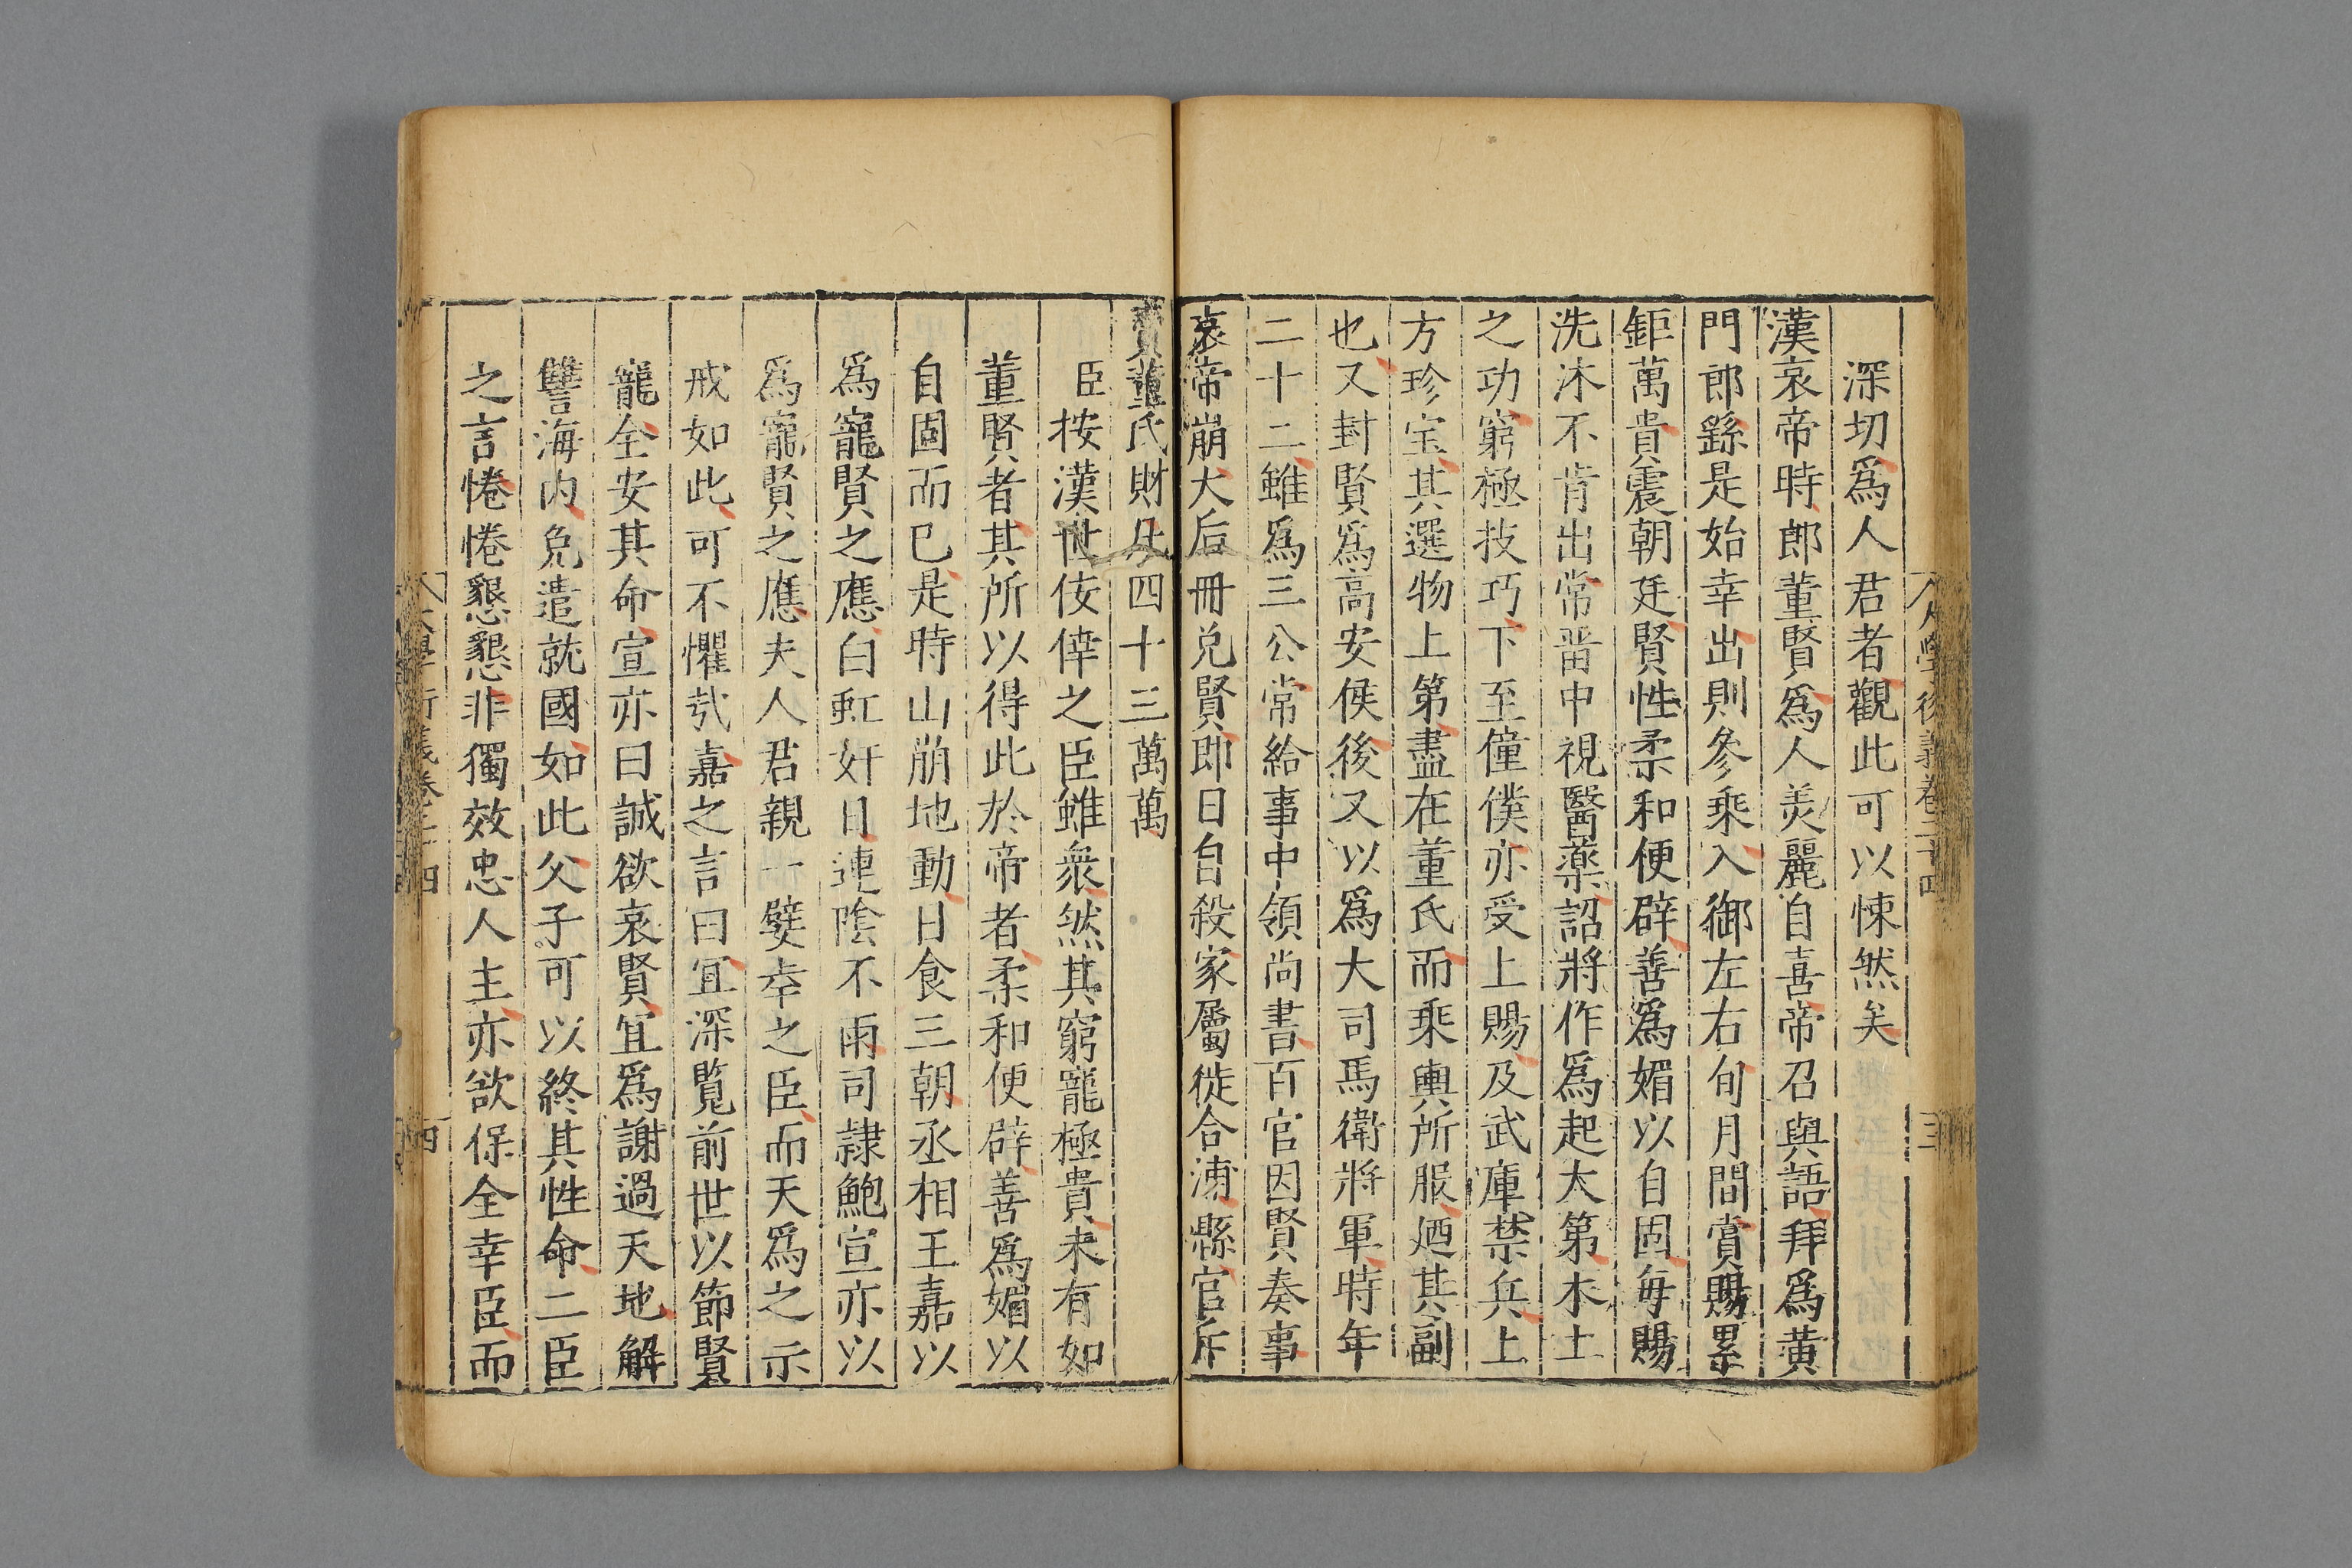 深切爲人君者觀此可以悚然矣
漢哀帝時郎董賢爲人美麗自喜帝召與語拜爲黃
門郎繇是始幸出則參乘入御左右旬月間賞賜累
鉅萬貴震朝廷賢性柔和便辟善爲媚以自固每賜
洗沐不肯出常畱中視醫藥詔將作爲起大第木土
之功窮極技巧下至僮僕亦受上賜及武庫禁兵上
方珍宝其選物上第盡在董氏而乘輿所服廼其副
也又封賢爲高安侯後又以爲大司馬衛將軍時年
二十二雖爲三公常給事中領尚書百官因賢奏事
哀帝崩大后冊免賢即日自殺家屬徙合浦縣官斥
賣董氏財凡四十三萬萬
臣按漢世佞倖之臣雖衆然其窮寵極貴未有如
董賢者其所以得此於帝者柔和便辟善爲媚以
自固而已是時山崩地動日食三朝丞相王嘉以
爲寵賢之應白虹奸日連陰不雨司隷鮑宣亦以
爲寵賢之應夫人君親一嬖幸之臣而天爲之示
戒如此可不懼哉嘉之言曰宜深覽前世以節賢
寵全安其命宣亦曰誠欲哀賢宜爲謝過天地解
讐海内免遣就國如此父子可以終其性命二臣
之言惓惓懇懇非獨效忠人主亦欲保全幸臣而
大學衍義卷二十四
四
三